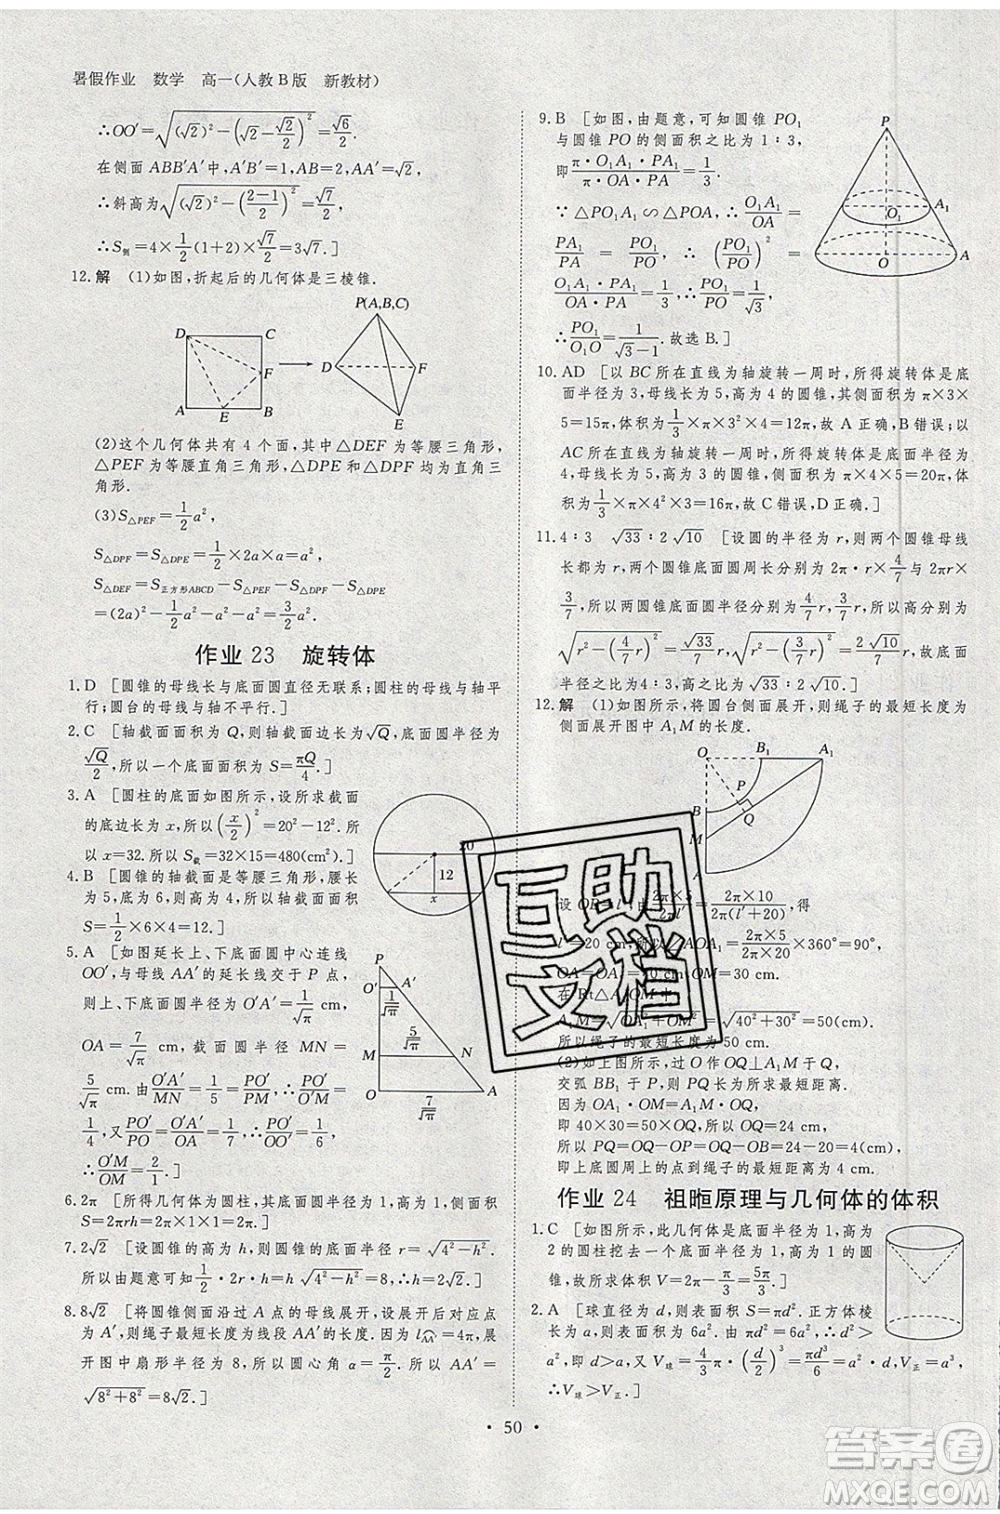 暑假作业 数学 高一(人教B版 新教材)
∴OO′=√((√2)²-(√2-√2/2)²)=√6/2.
在侧面 ABB′A′中,A′B′=1,AB=2,AA′=√2,
∴斜高为√((√2)²-((2-1)/2)²)=√7/2.
∴S侧=4×1/2(1+2)×√7/2=3√7.]
12.解 (1)如图,折起后的几何体是三棱锥.
D C F A E B
P(A,B,C) D F E
(2)这个几何体共有 4 个面,其中△DEF 为等腰三角形,
△PEF 为等腰直角三角形,△DPE 和△DPF 均为直角三
角形.
(3)S△PEF=1/2a²,
S△DPF=S△DPE=1/2×2a×a=a²,
S△DEF=S正方形ABCD-S△PEF-S△DPE-S△DPF
=(2a)²-1/2a²-a²-a²=3/2a².
作业 23 旋转体
1.D [圆锥的母线长与底面圆直径无联系;圆柱的母线与轴平
行;圆台的母线与轴不平行.]
2.C [轴截面面积为 Q,则正方形边长为√Q,底面圆半径为
√Q/2,所以此圆柱的一个底面面积 S=πQ/4.]
3.A [圆柱的底面如图所示,设所求截面
的底边长为 x,所以(x/2)²=20²-12².所
以 x=32.所以 S截=32×15=480(cm²).]
20 12 x
4.B [圆锥的轴截面是等腰三角形,两腰等
于母线长为 1,底边长为√3,所以轴截面面积
S=1/2×√3×1/2=√3/4.]
5.A [如图延长上、下底面圆中心连线
OO′,与母线 AA′的延长线交于 P 点,
则上、下底面圆半径为 O′A′=1/√π cm,
OA=7/√π cm,截面圆半径 MN=
5/√π cm.∵O′A′/MN=PO′/PM,O′A′/OA=PO′/PO,∴PO′/PM=
1/5,PO′/PO=1/7,
1/4,又∵PO′/PO=O′A′/OA=1/7,
∴O′M/OM=2/1.]
P O′ A′ 1/√π 5/√π M N O A 7/√π
6.2π [所得几何体为圆柱,其底面半径为 1,高为 1,故侧面积
S=2πrh=2π×1×1=2π.]
7.2√2 [设圆锥的高为 h,则底面圆半径 r=√(4²-h²)=√(16-h²).
所以由题意可知1/2·2r·h=h√(16-h²)=8,∴h=2√2.]
8.8√2 [将圆锥侧面沿过 A 点的母线展开,设展开后对应点
为 A′,则绳子最短长度为线段 AA′长度.
展开图中扇形半径为 8,所以圆心角 α=4π/8=π/2.
√(8²+8²)=8√2.]
9.B [如图,由题意,可知圆锥 PO₁
与圆锥 PO 的侧面积之比为 1∶3,
即 π·O₁A₁·PA₁/π·OA·PA=1/3.
∵△PO₁A₁∽△POA,∴O₁A₁/OA=
PA₁/PA=PO₁/PO.∴(PO₁/PO)²=
O₁A₁·PA₁/OA·PA=1/3.∴PO₁/PO=1/√3.
∴PO₁/O₁O=1/(√3-1).故选 B.]
P O₁ A₁ O A
10.AD [以 BC 所在直线为轴旋转一周时,所得旋转体是底
面半径为 3,母线长为 5,高为 4 的圆锥,其侧面积为 π×3×
5=15π,体积为1/3×π×3²×4=12π,故 A 正确,B 错误;以
AC 所在直线为轴旋转一周时,所得旋转体是底面半径为 4,
母线长为 5,高为 3 的圆锥,侧面积为 π×4×5=20π,体
积为1/3×π×4²×3=16π,故 C 错误,D 正确.]
11.4∶3 √33∶2√10 [设圆的半径为 r,则两圆锥母线
长都为 r,两圆锥底面圆周长分别为 2π·r·4/7与 2π·r·
3/7,所以两圆锥底面圆半径分别为4/7r,3/7r,所以高分别为
√(r²-(4/7r)²)=√33/7r,√(r²-(3/7r)²)=2√10/7r,所以两圆锥高
之比为√33∶2√10.]
12.解 (1)如图所示,将圆台侧面展开,则绳子的最短长度为
侧面展开图中 A₁M 的长度.
O B₁ A₁ P B Q M A
设 OB=l′,由2π×5/2πl′=2π×10/2π(l′+20),得
l′=20 cm,所以∠AOA₁=2π×5/(2π×20)×360°=90°,
OA=OA₁=40 cm,OM=30 cm.
在 Rt△A₁OM 中,
A₁M=√(OA₁²+OM²)=√(40²+30²)=50(cm).
所以绳子的最短长度为 50 cm.
(2)如上图所示,过 O 作 OQ⊥A₁M 于 Q,
交弧 BB₁ 于 P,则 PQ 长为所求最短距离.
因为 OA₁·OM=A₁M·OQ,
即 40×30=50×OQ,所以 OQ=24(cm).
所以 PQ=OQ-OP=OQ-OB=24-20=4(cm).
即上底圆周上的点到绳子的最短距离为 4 cm.
作业 24 祖暅原理与几何体的体积
1.C [如图所示,此几何体是底面半径为 1,高为
2 的圆柱挖去一个底面半径为 1,高为 1 的圆锥,
所以所求体积 V=2π-π/3=5π/3.]
2.A [球直径为 d,则表面积 S=πd².正方体棱
长为 a,则表面积为 6a².由 πd²=6a²,∴d²/
a²=6/π,即 d>a,V球=4/3π·(d/2)³=πd³/6=a²d,V正=a³,
∴V球>V正.]
·50·
互助文档
答案卷
MXQE.COM